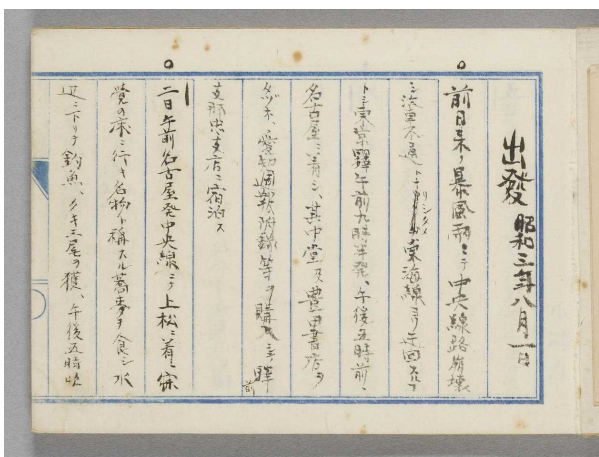 出發 昭和三年八月一日
前日来ノ暴風雨ニテ中央線路崩壊
シ汽車不通トナリシタメ東海線ヨリ迂回スルコ
トニシ東京驛午前九時半発、午後五時前ニ
名古屋ニ着シ其中堂又豊田書店ヲ
タヅネ、愛知週報附録等ヲ購入シテ驛前
支那忠支店ニ宿泊ス
二日午前名古屋発中央線ニテ上松ニ着シ寝
覚の床ニ行キ名物ト称スル蕎麦ヲ食シ水
辺ニ下リテ釣魚、クキ三尾ヲ獲、午後五時頃